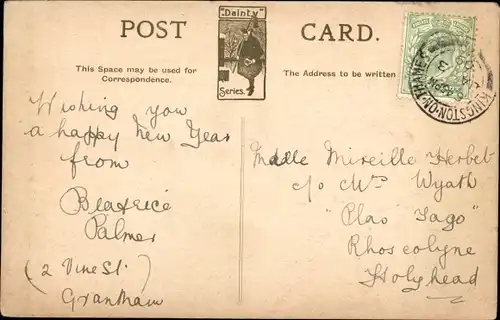 POST CARD.
"Dainty"
Series.
This Space may be used for
Correspondence.
The Address to be written
KINGSTON-ON-THAMES
Wishing you
a happy New Year
from
Beatrice
Palmer
(2 Vine St.)
Grantham
Mdlle Mireille Herbet
c/o Mrs Wyath
"Plas Iago"
Rhoscolyne
Holyhead